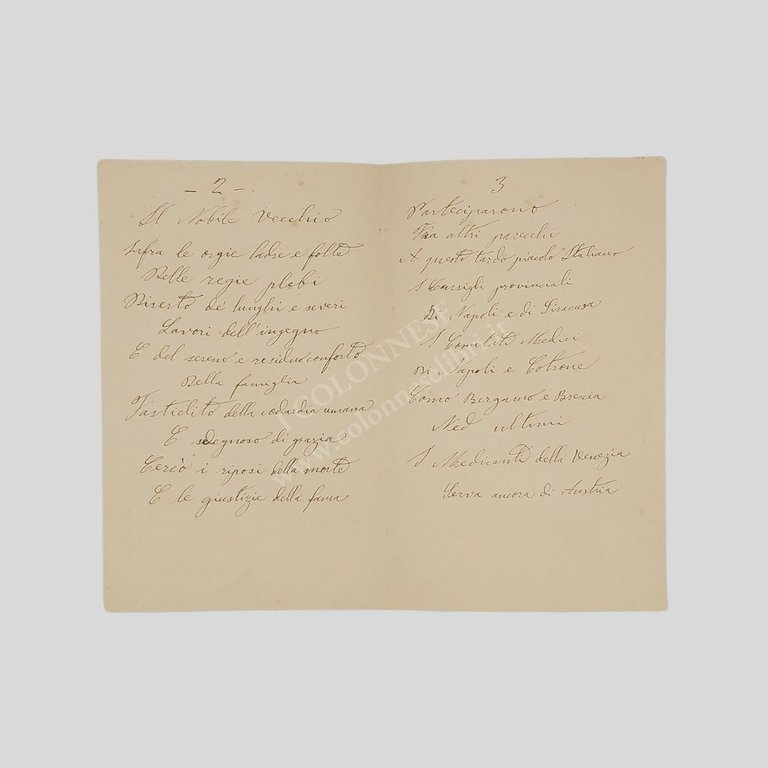 - 2 -
Il Nobile Vecchio
Infra le orgie ladre e folte
Delle regie plebi
Diserto de' lunghi e severi
Lavori dell'ingegno
E del sereno e residuo conforto
Della famiglia
Fastidito della codardia umana
E sdegnoso di grazia
Cercò i riposi della morte
E le giustizie della fama
3
Parteciparono
Fra altri parecchi
A questo tardo piacolo Italiano
I Consigli provinciali
Di Napoli e di Siracusa
I Comitati Medici
Di Napoli e Cotrone
Como Bergamo e Brescia
Ned ultimi
I Medicanti della Venezia
Serva ancora di Austria
COLONNESE
www.colonneselibri.it